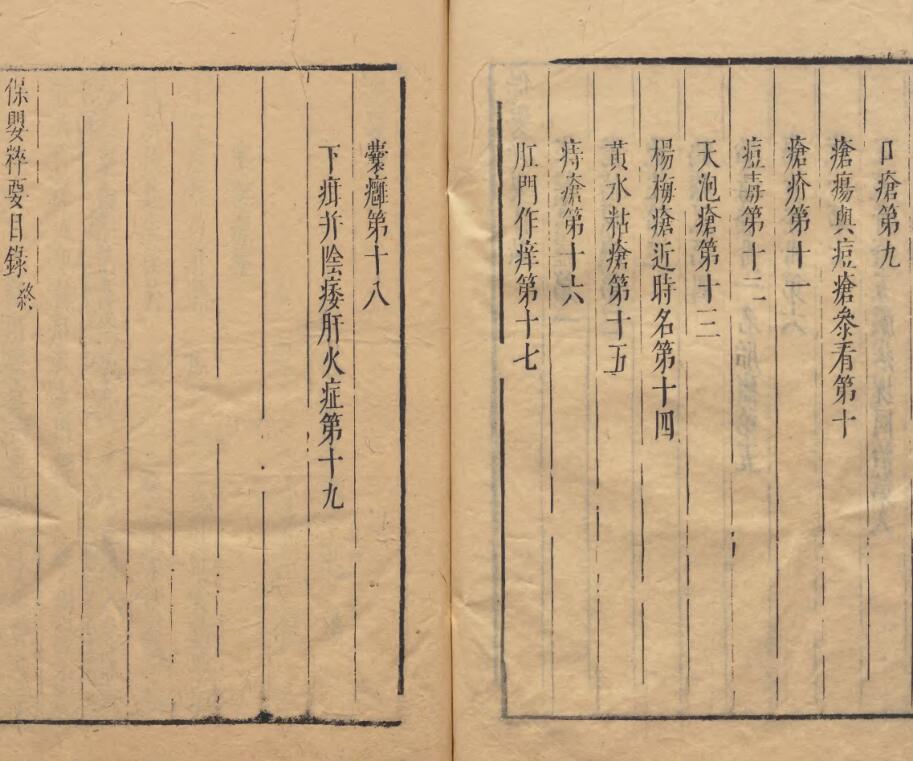 口瘡第九
瘡瘍與痘瘡參看第十
瘡疥第十一
痘毒第十二
天泡瘡第十三
楊梅瘡近時名第十四
黃水粘瘡第十五
痔瘡第十六
肛門作痒第十七
囊癰第十八
下疳并陰痿肝火症第十九
保嬰粹要目錄終